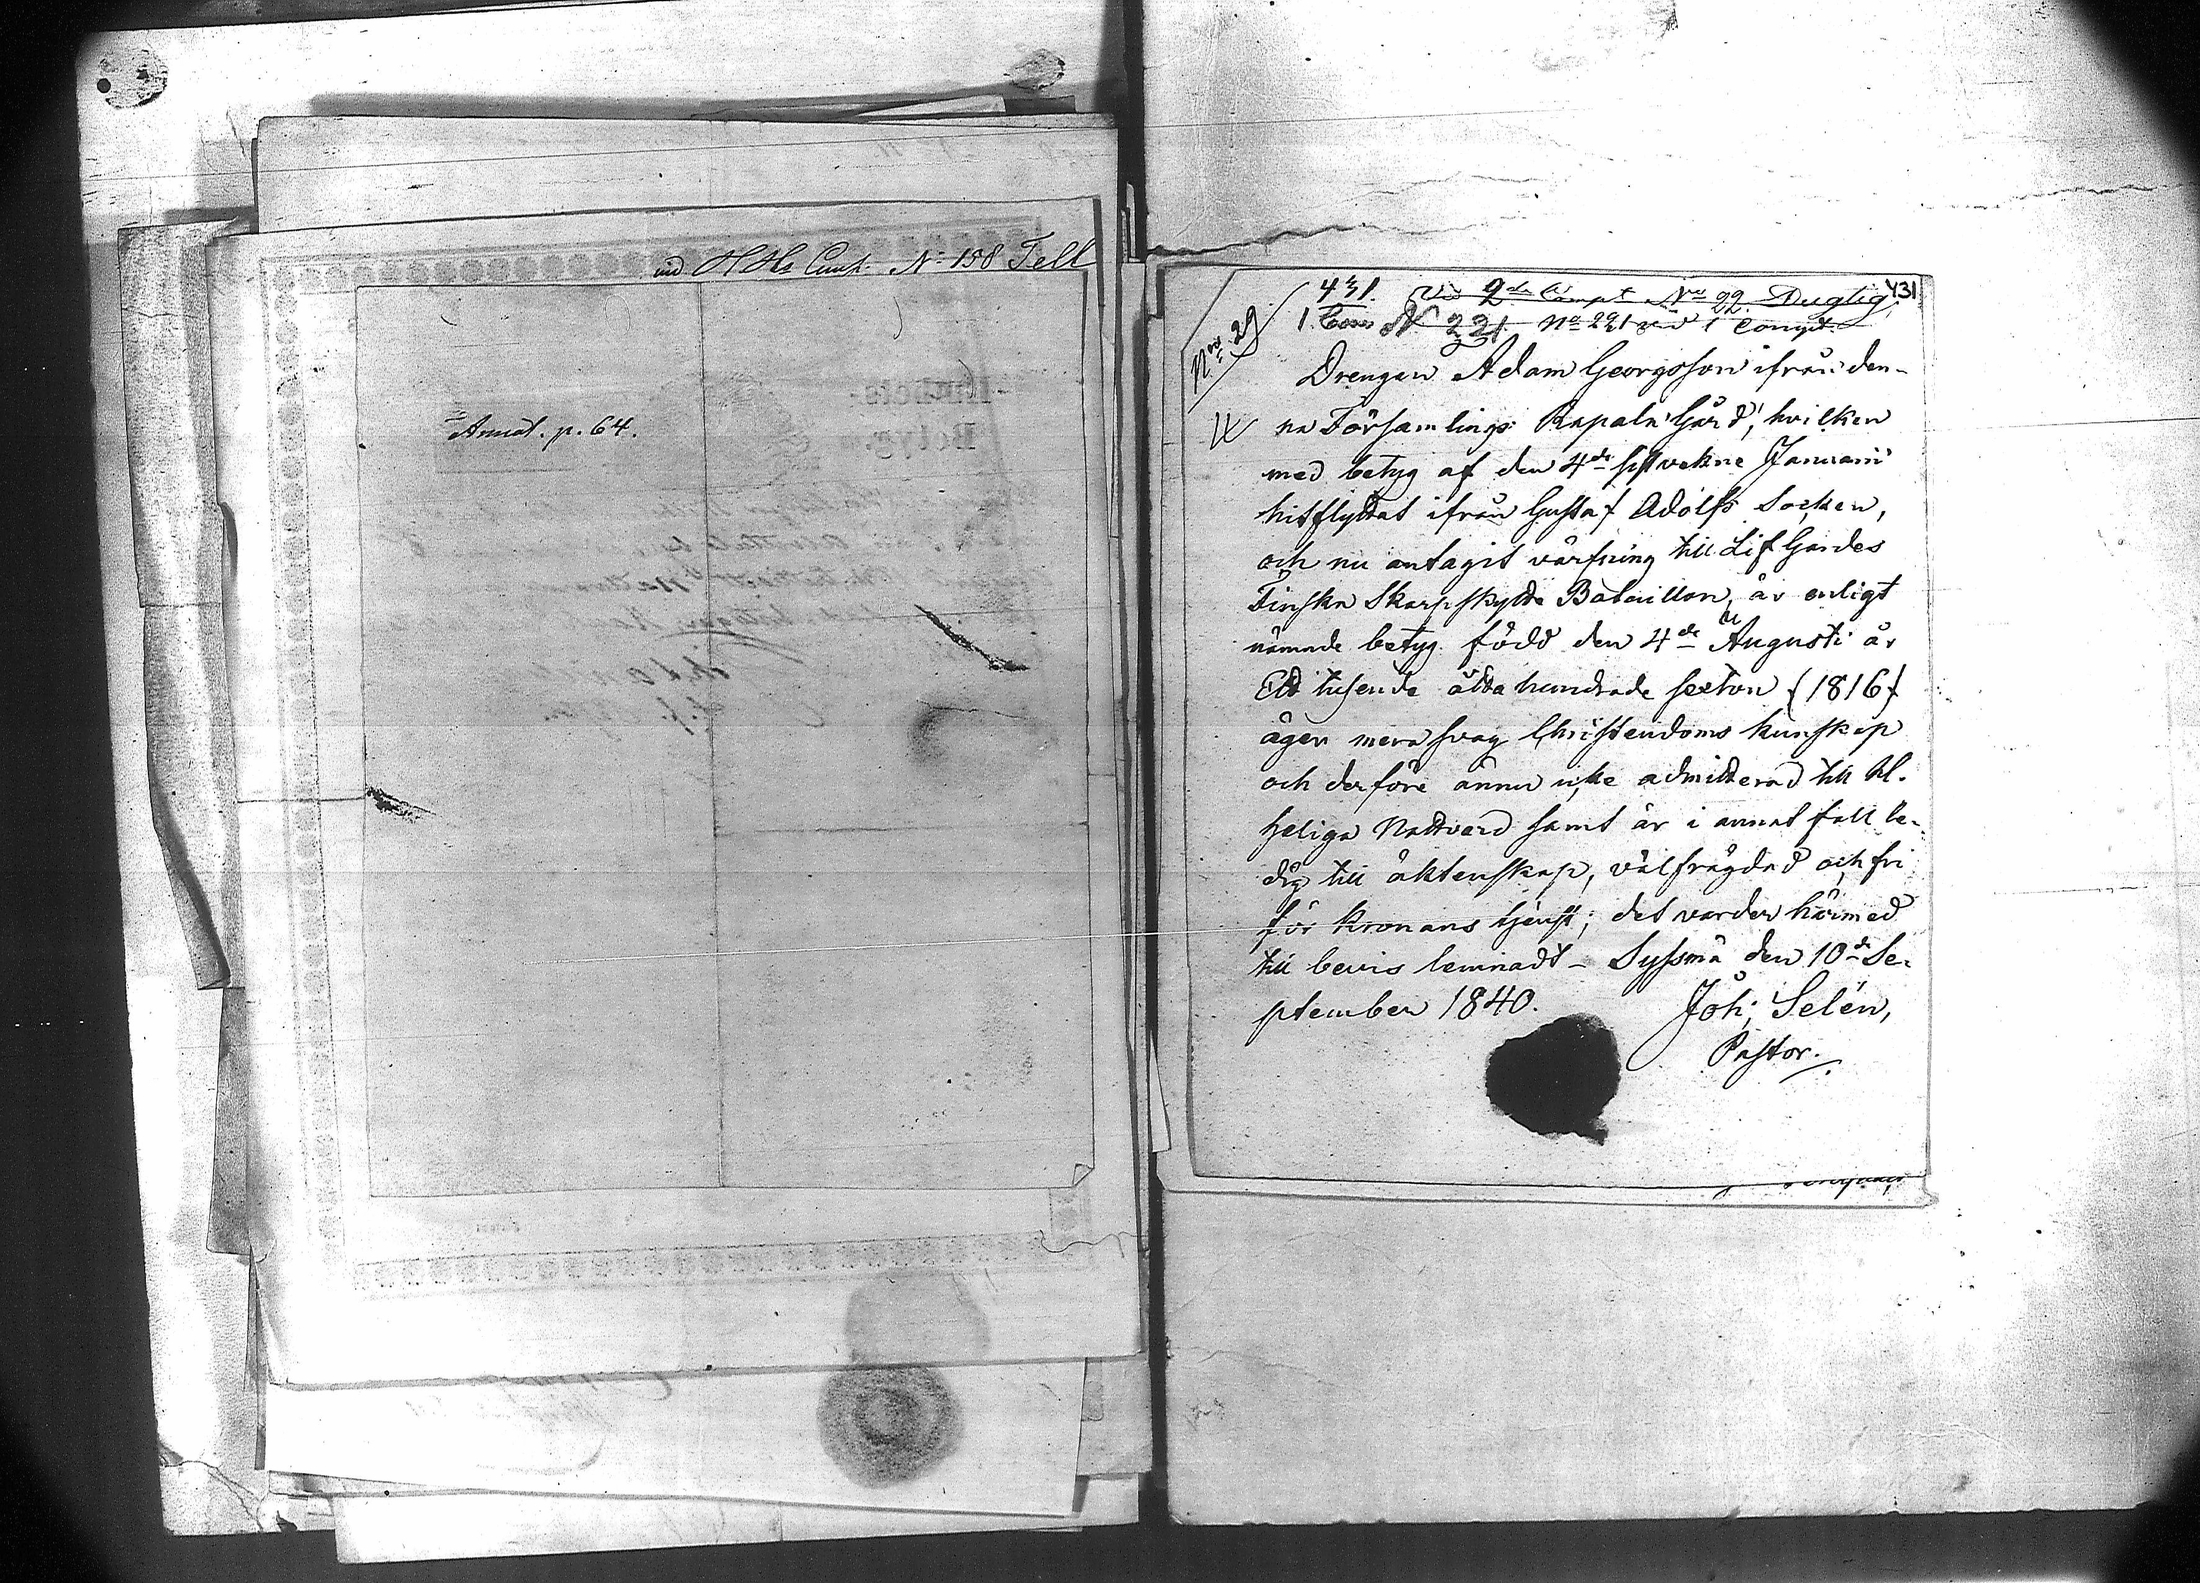 vid H Hs Comp. N: 158 Tell
Annot. p. 64.
431. Vid 2de Compt No 22. Duglig. 431
1. Com N 221. No 221 vid 1 Compt.
Nox 29
Drengen Adam Georgsson ifrån den-
na Församlings Rapala Gård, hvilken
med betyg af den 4de sistvekne Januarii
hitflyttat ifrån Gustaf Adolfs Socken,
och nu antagit värfning till Lif Gardes
Finska Skarpskytte Bataillon, är enligt
nämnde betyg född den 4de Augusti år
Ett tusende åtta hundrade sexton (1816)
äger mera svag Christendoms kunskap
och derföre ännu icke admitterad till H.
heliga Nattvard samt är i annat fall le-
dig till äktenskap, välfrägdad och fri
för Kronans tjenst; det varder härmed
till bevis lemnadt - Syssmä den 10de Se-
ptember 1840. Joh: Selén,
Pastor.